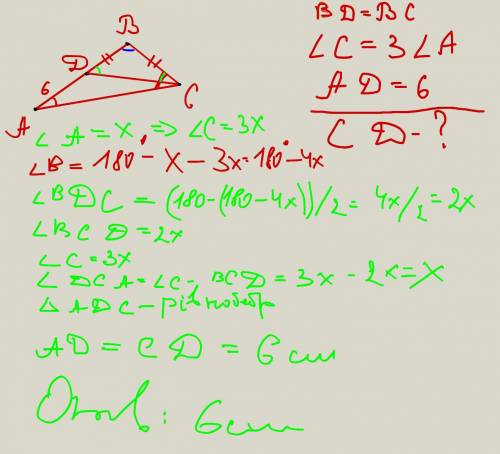 B
D
6
A
C
BD=BC
∠C=3∠A
AD=6
CD-?
∠A=x ⇒ ∠C=3x
∠B=180°-x-3x=180°-4x
∠BDC=(180-(180-4x))/2=4x/2=2x
∠BCD=2x
∠C=3x
∠DCA=∠C-BCD=3x-2x=x
△ADC-рівнобедр
AD=CD=6cm
6cm